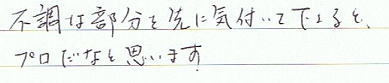 不調な部分を先に気付いて下さると、
プロだなと思います